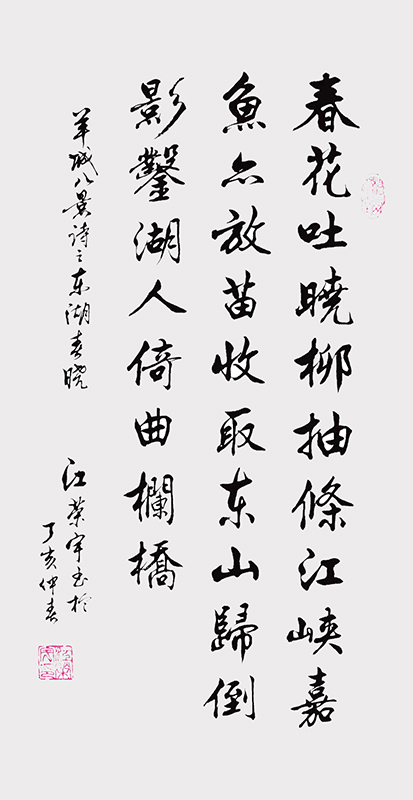 春花吐曉柳抽條江峽嘉
魚亦放苗收取东山歸倒
影鑿湖人倚曲欄橋
羊城八景诗之东湖春晓
江荣宇书於
丁亥仲春